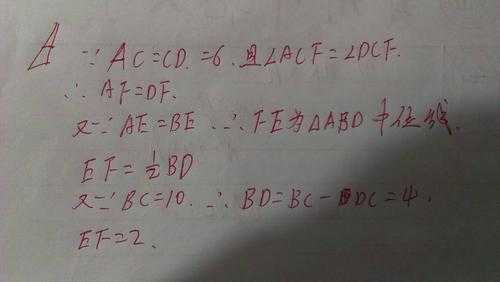 解 ∵ AC=CD.=6.且∠ACF=∠DCF.
∴ AF=DF.
又∵ AE=BE ∴ FE为△ABD中位线.
EF=½BD
又∵ BC=10. ∴ BD=BC-DC=4.
EF=2.